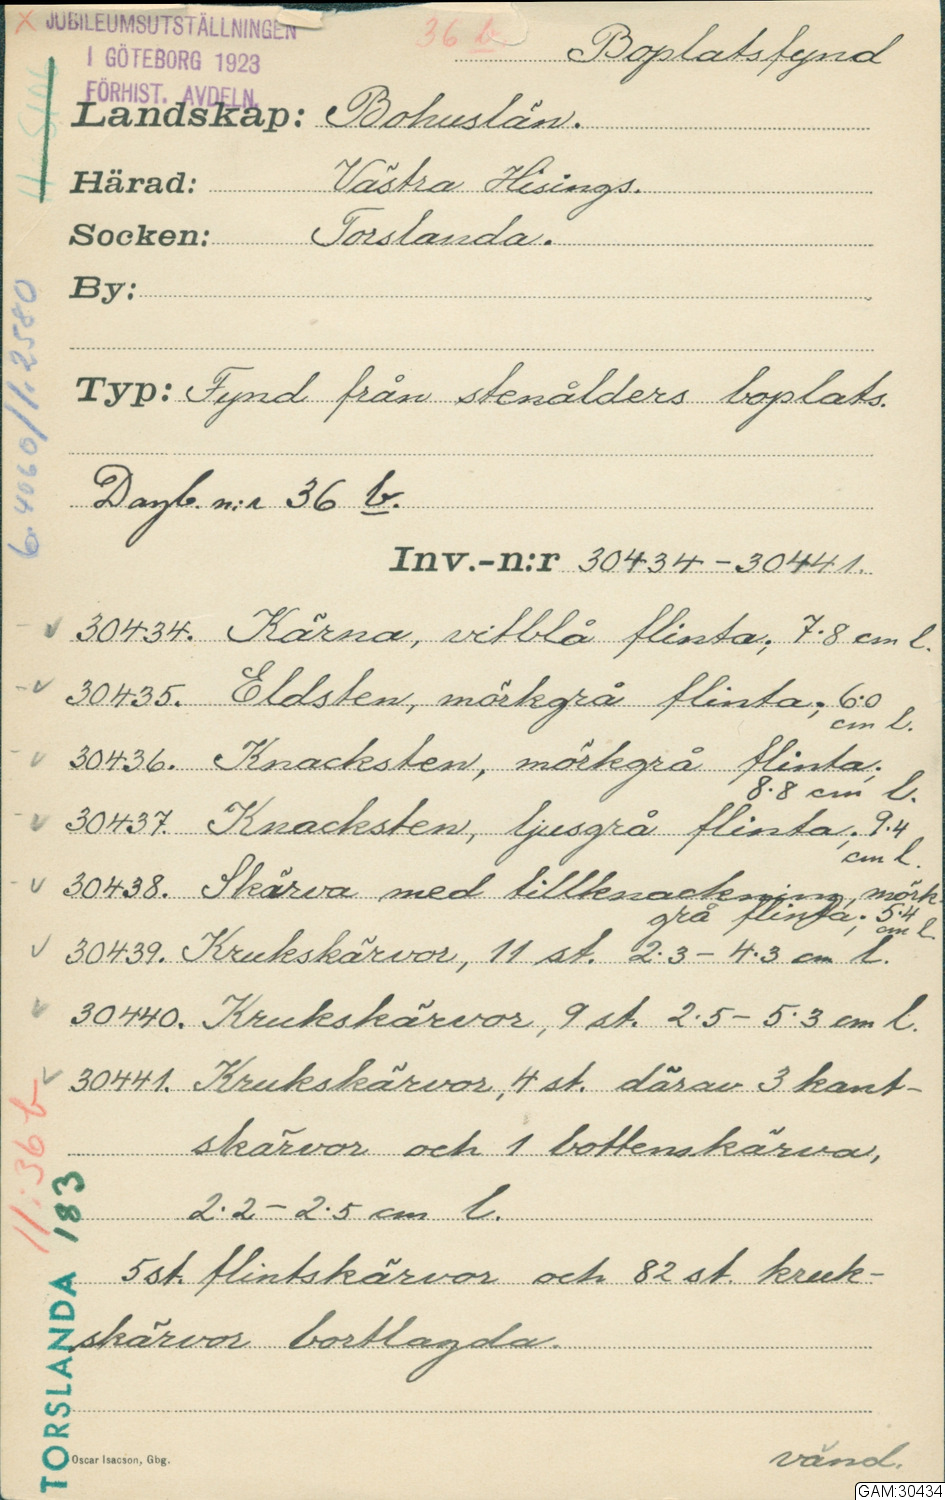 X JUBILEUMSUTSTÄLLNINGEN
I GÖTEBORG 1923
FÖRHIST. AVDELN.
36 b.
Boplatsfynd
Landskap: Bohuslän.
Härad: Västra Hisings.
Socken: Torslanda.
By:
Typ: Fynd från stenålders boplats.
Dagb. n:r 36 b.
Inv.-n:r 30434-30441.
30434. Kärna, vitblå flinta; 7.8 cm l.
30435. Eldsten, mörkgrå flinta; 6.0
cm l.
30436. Knacksten, mörkgrå flinta;
8.8 cm l.
30437. Knacksten, ljusgrå flinta; 9.4
cm l.
30438. Skärva med tillknackning, mörk-
grå flinta; 5.4
cm l.
30439. Krukskärvor, 11 st. 2.3-4.3 cm l.
30440. Krukskärvor, 9 st. 2.5-5.3 cm l.
30441. Krukskärvor, 4 st. därav 3 kant-
skärvor och 1 bottenskärva,
2.2-2.5 cm l.
5 st. flintskärvor och 82 st. kruk-
skärvor bortlagda.
vänd.
Oscar Isacson, Gbg.
6.4060/1,2580
11:36 b
TORSLANDA 183
GAM:30434